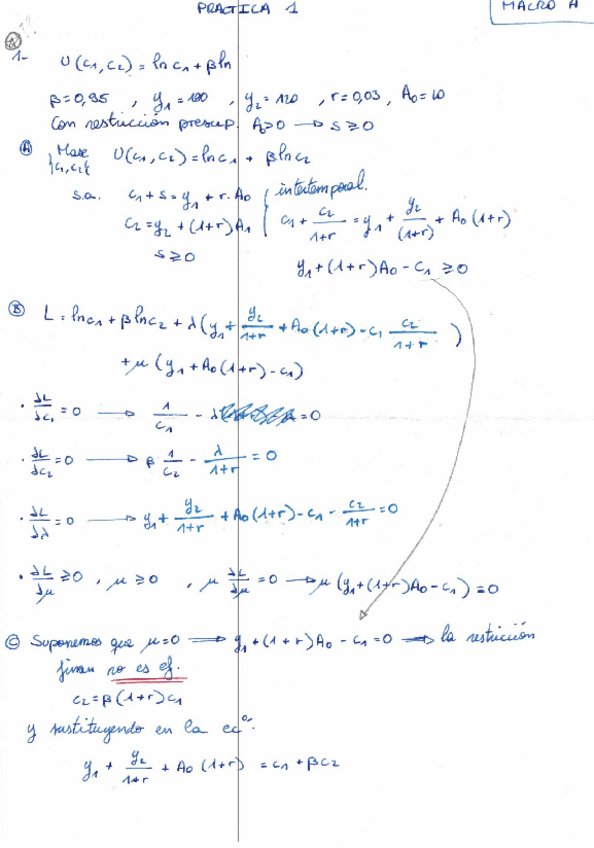 PRACTICA 1
MACRO A
1- U(c1,c2) = ln c1 + β ln
β=0,95 , y1 = 100 , y2 = 120 , r = 0,03, A0 = 10
Con restricción presup. A≥0 → s ≥ 0
Ⓐ Max U(c1,c2) = ln c1 + β ln c2
{c1,c2}
s.a. c1 + s = y1 + r · A0
c2 = y2 + (1+r) A1
s ≥ 0
intertemporal.
c1 + c2/(1+r) = y1 + y2/(1+r) + A0 (1+r)
y1 + (1+r) A0 - c1 ≥ 0
Ⓑ L = ln c1 + β ln c2 + λ (y1 + y2/(1+r) + A0 (1+r) - c1 c2/(1+r))
+ μ (y1 + A0 (1+r) - c1)
· ∂L/∂c1 = 0 → 1/c1 - λ = 0
· ∂L/∂c2 = 0 → β 1/c2 - λ/(1+r) = 0
· ∂L/∂λ = 0 → y1 + y2/(1+r) + A0 (1+r) - c1 - c2/(1+r) = 0
· ∂L/∂μ ≥ 0 , μ ≥ 0 , μ ∂L/∂μ = 0 → μ (y1 + (1+r) A0 - c1) = 0
Ⓒ Suponemos que μ = 0 ⟹ y1 + (1+r) A0 - c1 = 0 ⟹ la restricción
no es ef.
c2 = β (1+r) c1
y sustituyendo en la ecº.
y1 + y2/(1+r) + A0 (1+r) = c1 + β c2